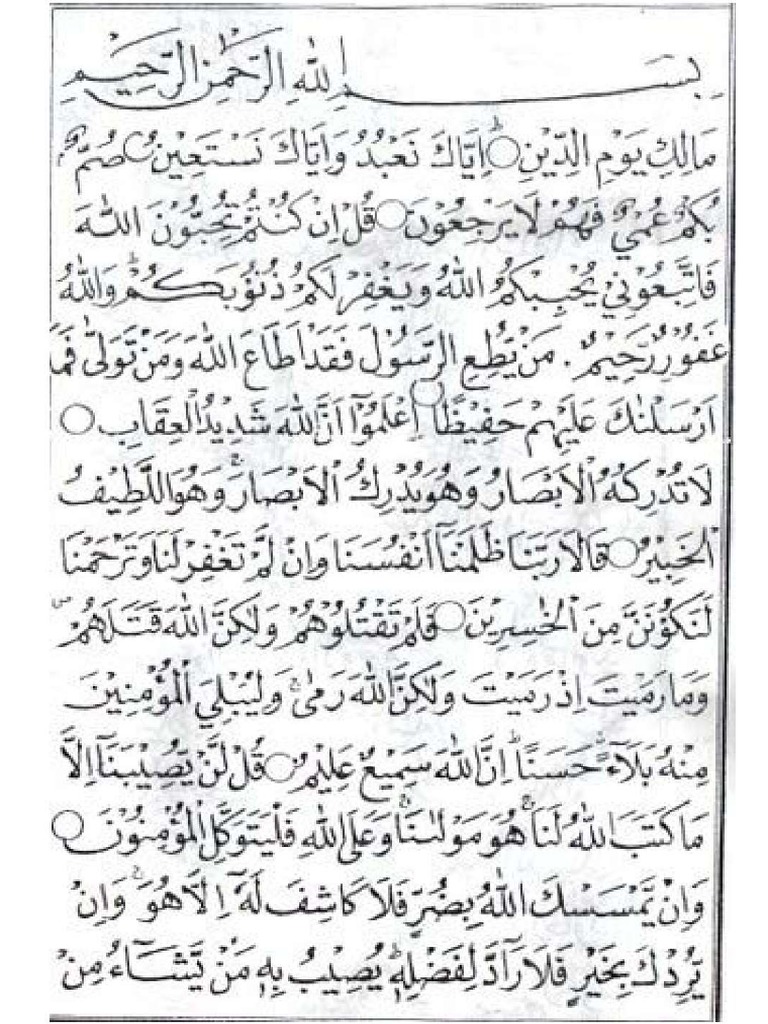 بِسْمِ اللهِ الرَّحْمٰنِ الرَّحِيْمِ
مَالِكِ يَوْمِ الدِّيْنِ ۝ اِيَّاكَ نَعْبُدُ وَاِيَّاكَ نَسْتَعِيْنُ ۝ صُمٌّ
بُكْمٌ عُمْيٌ فَهُمْ لَا يَرْجِعُوْنَ ۝ قُلْ اِنْ كُنْتُمْ تُحِبُّوْنَ اللهَ
فَاتَّبِعُوْنِيْ يُحْبِبْكُمُ اللهُ وَيَغْفِرْ لَكُمْ ذُنُوْبَكُمْ ۗ وَاللهُ
غَفُوْرٌ رَّحِيْمٌ . مَنْ يُّطِعِ الرَّسُوْلَ فَقَدْ اَطَاعَ اللهَ وَمَنْ تَوَلّٰى فَمَا
اَرْسَلْنٰكَ عَلَيْهِمْ حَفِيْظًا ۝ اِعْلَمُوْٓا اَنَّ اللهَ شَدِيْدُ الْعِقَابِ ۝
لَا تُدْرِكُهُ الْاَبْصَارُ وَهُوَ يُدْرِكُ الْاَبْصَارَ ۚ وَهُوَ اللَّطِيْفُ
الْخَبِيْرُ ۝ قَالَا رَبَّنَا ظَلَمْنَآ اَنْفُسَنَا وَاِنْ لَّمْ تَغْفِرْ لَنَا وَتَرْحَمْنَا
لَنَكُوْنَنَّ مِنَ الْخٰسِرِيْنَ ۝ فَلَمْ تَقْتُلُوْهُمْ وَلٰكِنَّ اللهَ قَتَلَهُمْ ۖ
وَمَا رَمَيْتَ اِذْ رَمَيْتَ وَلٰكِنَّ اللهَ رَمٰى ۚ وَلِيُبْلِيَ الْمُؤْمِنِيْنَ
مِنْهُ بَلَآءً حَسَنًا ۗ اِنَّ اللهَ سَمِيْعٌ عَلِيْمٌ ۝ قُلْ لَّنْ يُّصِيْبَنَآ اِلَّا
مَا كَتَبَ اللهُ لَنَا ۚ هُوَ مَوْلٰىنَا ۚ وَعَلَى اللهِ فَلْيَتَوَكَّلِ الْمُؤْمِنُوْنَ ۝
وَاِنْ يَّمْسَسْكَ اللهُ بِضُرٍّ فَلَا كَاشِفَ لَهٗٓ اِلَّا هُوَ ۚ وَاِنْ
يُّرِدْكَ بِخَيْرٍ فَلَا رَآدَّ لِفَضْلِهٖ ۗ يُصِيْبُ بِهٖ مَنْ يَّشَآءُ مِنْ